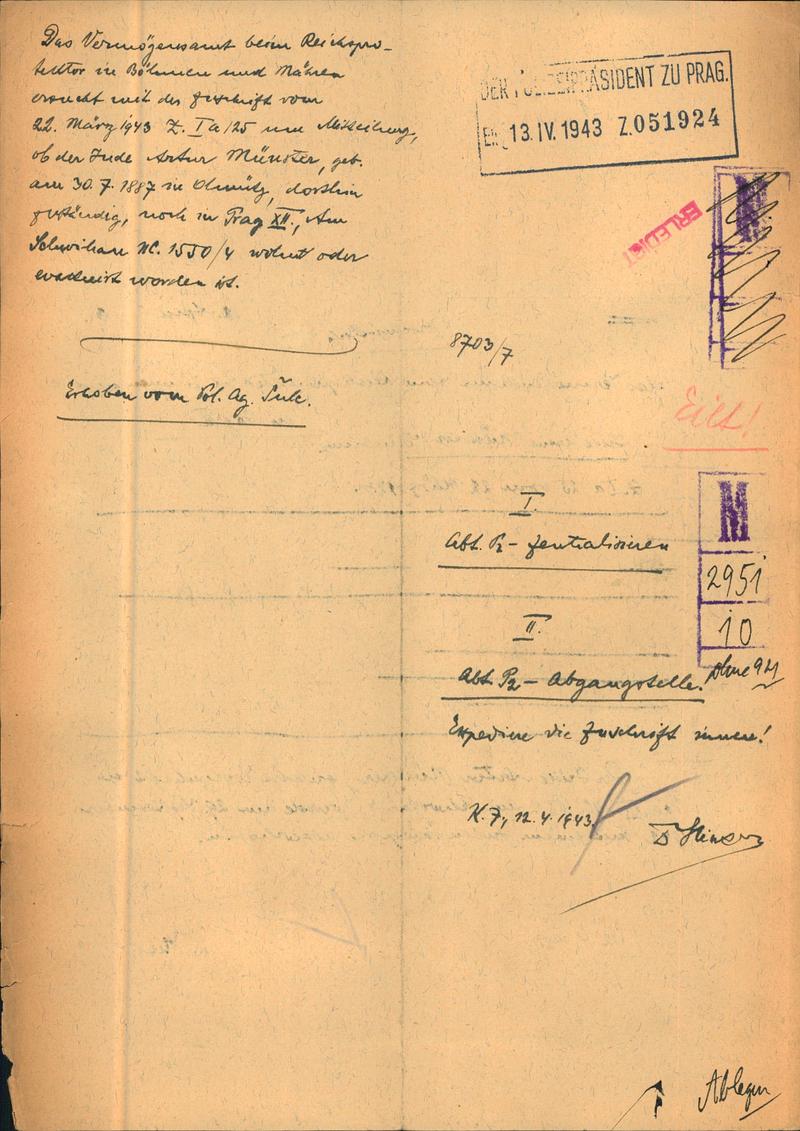 Das Vermögensamt beim Reichspro-
tektor in Böhmen und Mähren
ersucht mit der Zuschrift vom
22. März 1943 Z. Ia/25 um Mitteilung,
ob der Jude Artur Münster, geb.
am 30.7.1887 in Olmütz, dorthin
zuständig, noch in Prag XII., Am
Schwihau NC. 1550/4 wohnt oder
evakuirt worden ist.
Erhoben vom Pol. Ag.
DER POLIZEIPRÄSIDENT ZU PRAG.
13.IV.1943 Z.051924
ERLEDIGT
8703/7
Eilt!
I.
Abt. P2 - zentralisieren
M
2951
10
ohne 921
II.
Abt. P2 - Abgangstelle.
Expediere die Zuschrift innen!
K. 7, 12.4.1943
Ablegen